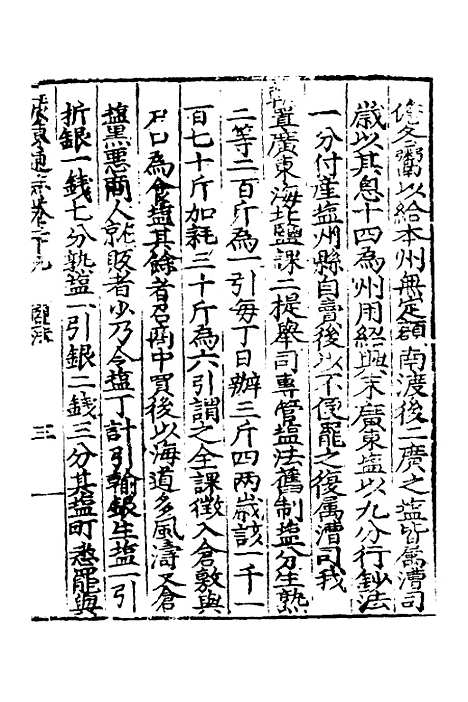 以給本州無定額南渡後二廣之塩皆屬漕司
歲以其息十四為州用紹興末廣東塩以九分行鈔法
一分付產塩州縣自賣後以不便罷之復属漕司我
朝置廣東海北鹽課二提舉司專管塩法舊制塩分生熟
二等二百斤為一引每丁日辦三斤四兩歲該一千一
百七十斤加耗三十斤為六引謂之全課徵入倉敖與
戶口為食塩其餘者召商中買後以海道多風濤又倉
塩黑惡商人就販者少乃令塩丁計引輸銀生塩一引
折銀一錢七分熟塩一引銀二錢三分其塩町悉罷與
廣東通志卷二十九 鹽法 三